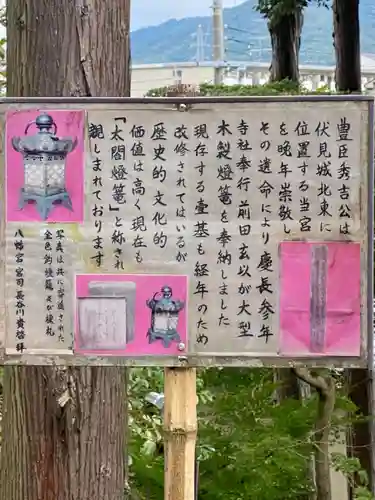 豊臣秀吉公は
伏見城北東に
位置する当宮
を晩年崇敬し
その遺命により慶長参年
寺社奉行前田玄以が大型
木製燈篭を奉納しました
現存する壹基も経年のため
改修されてはいるが
歴史的文化的
価値は高く現在も
「太閤燈篭」と称され
親しまれております
写真は共に寄進された
金色釣燈籠
八幡宮 宮司 長谷川
敬白